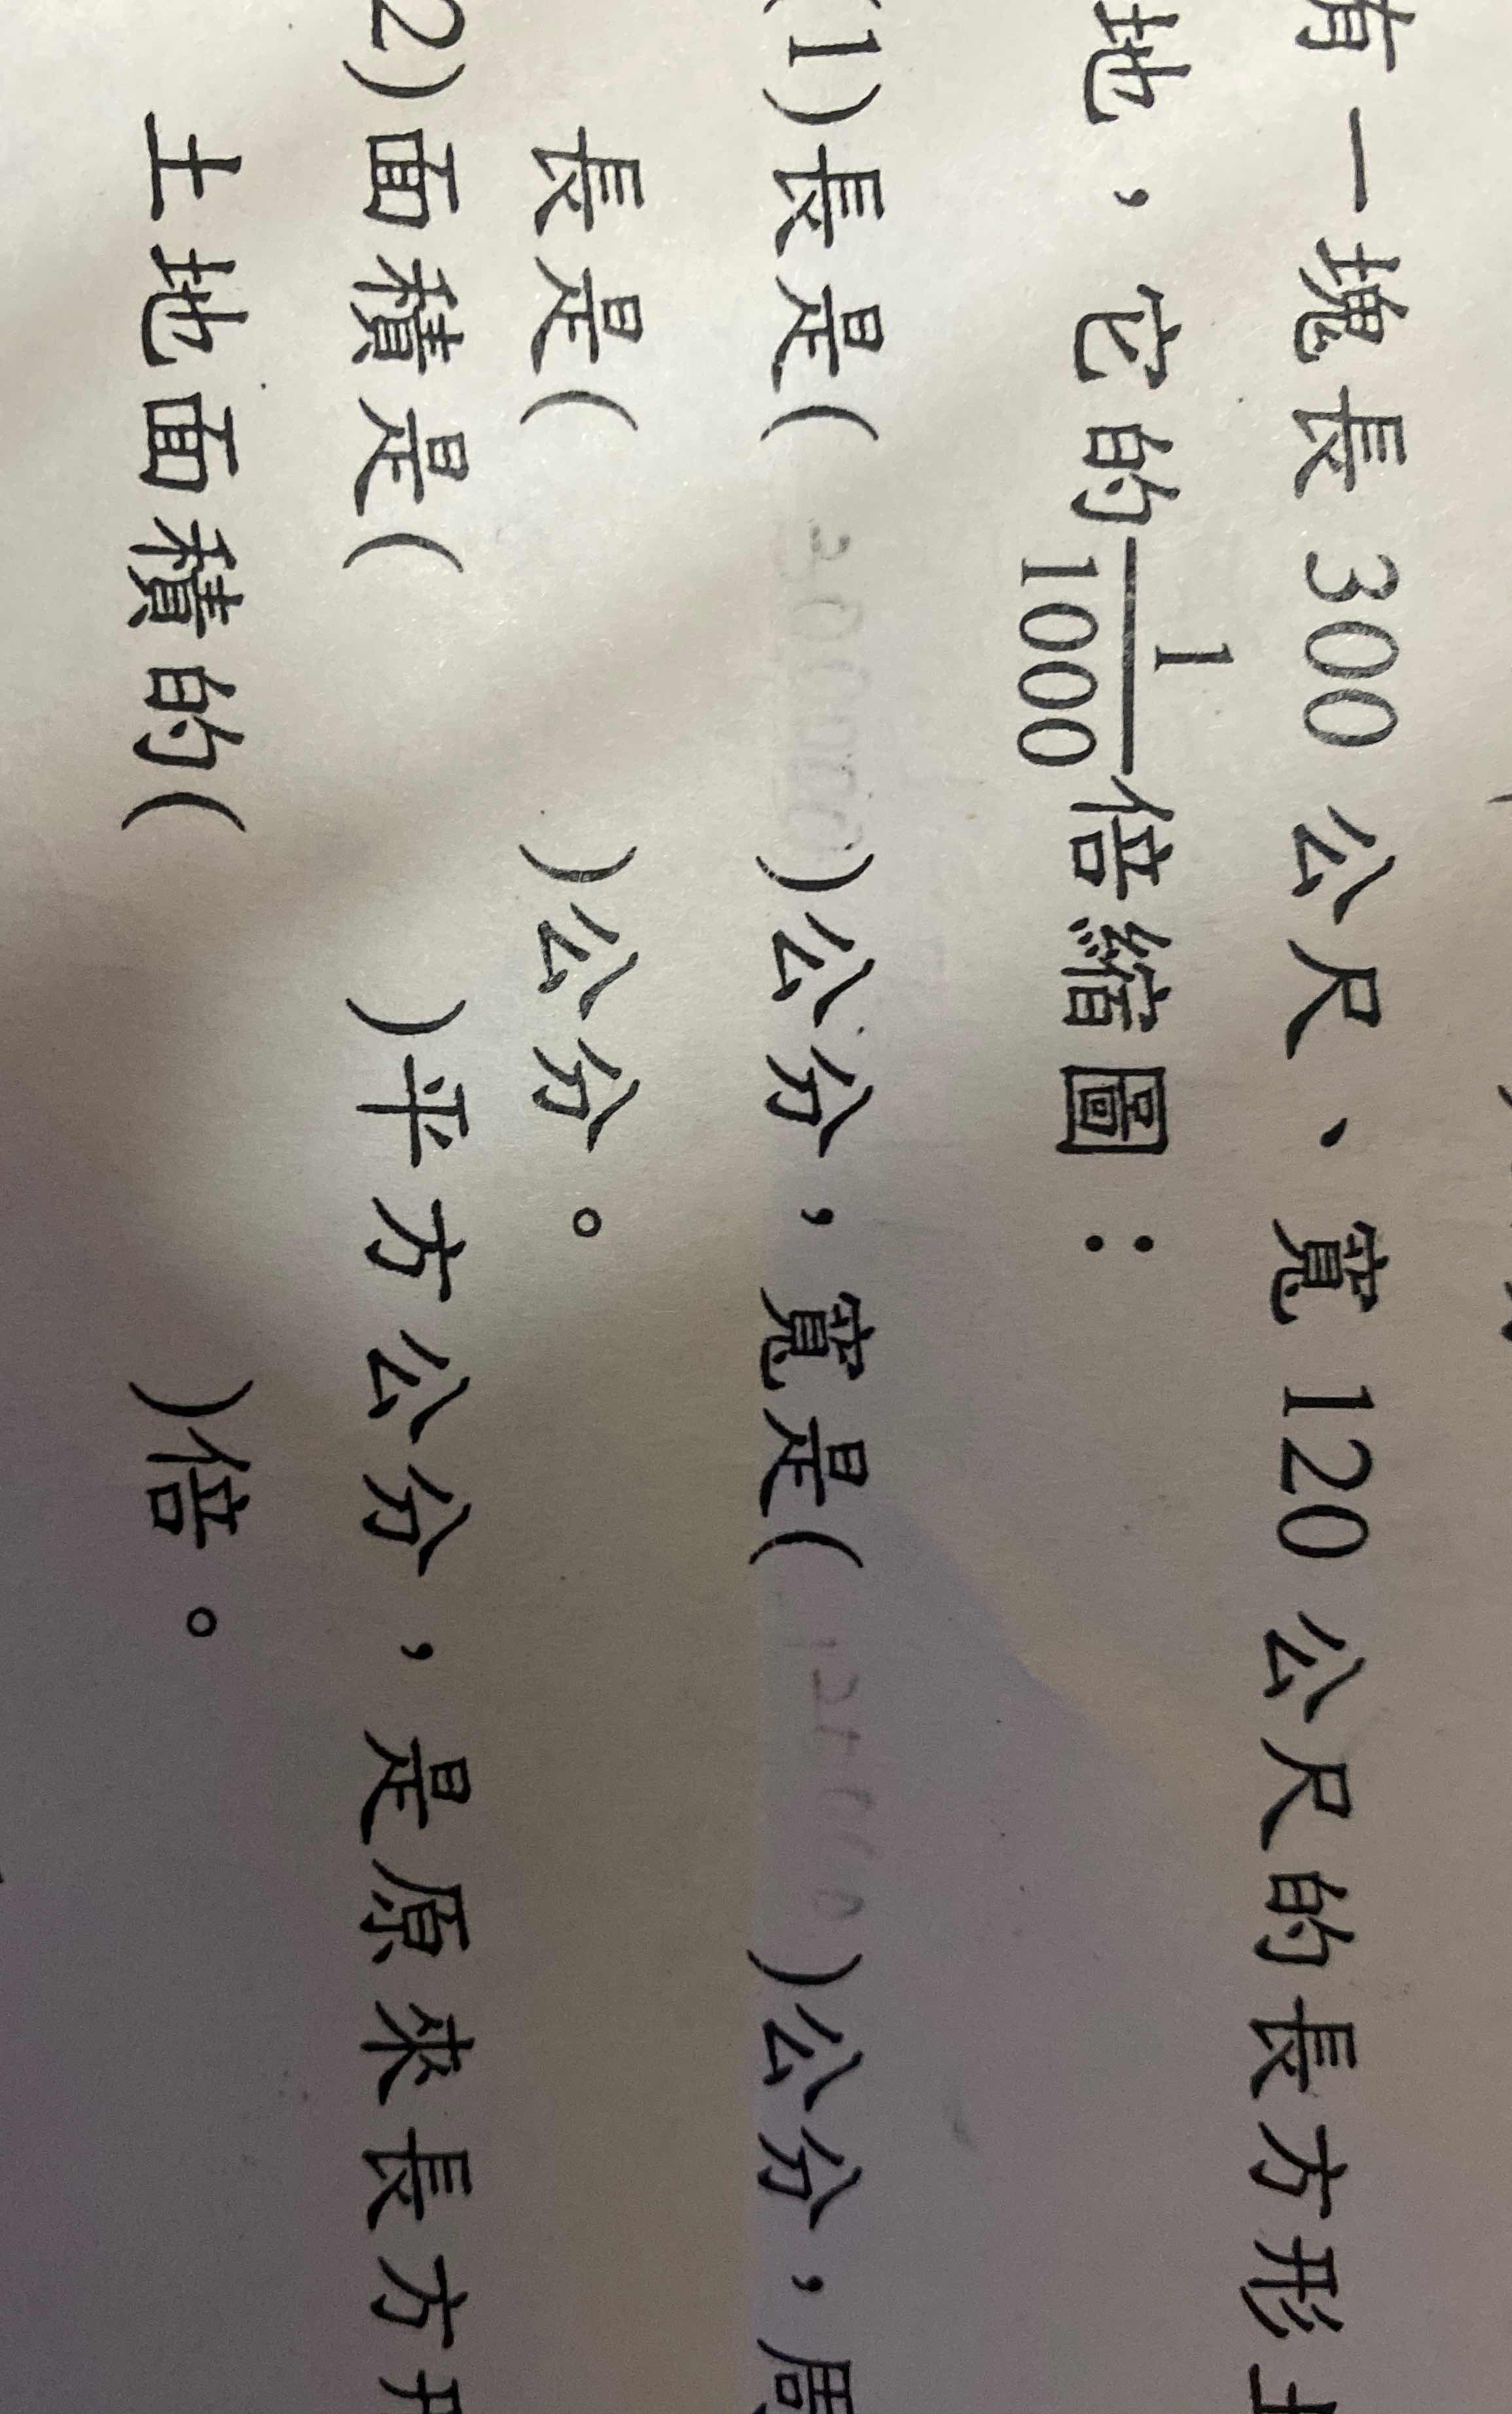 有一塊長 300 公尺、寬 120 公尺的長方形土
地，它的 1/1000 倍縮圖：
(1)長是( )公分，寬是( )公分，周
長是( )公分。
2)面積是( )平方公分，是原來長方形
土地面積的( )倍。